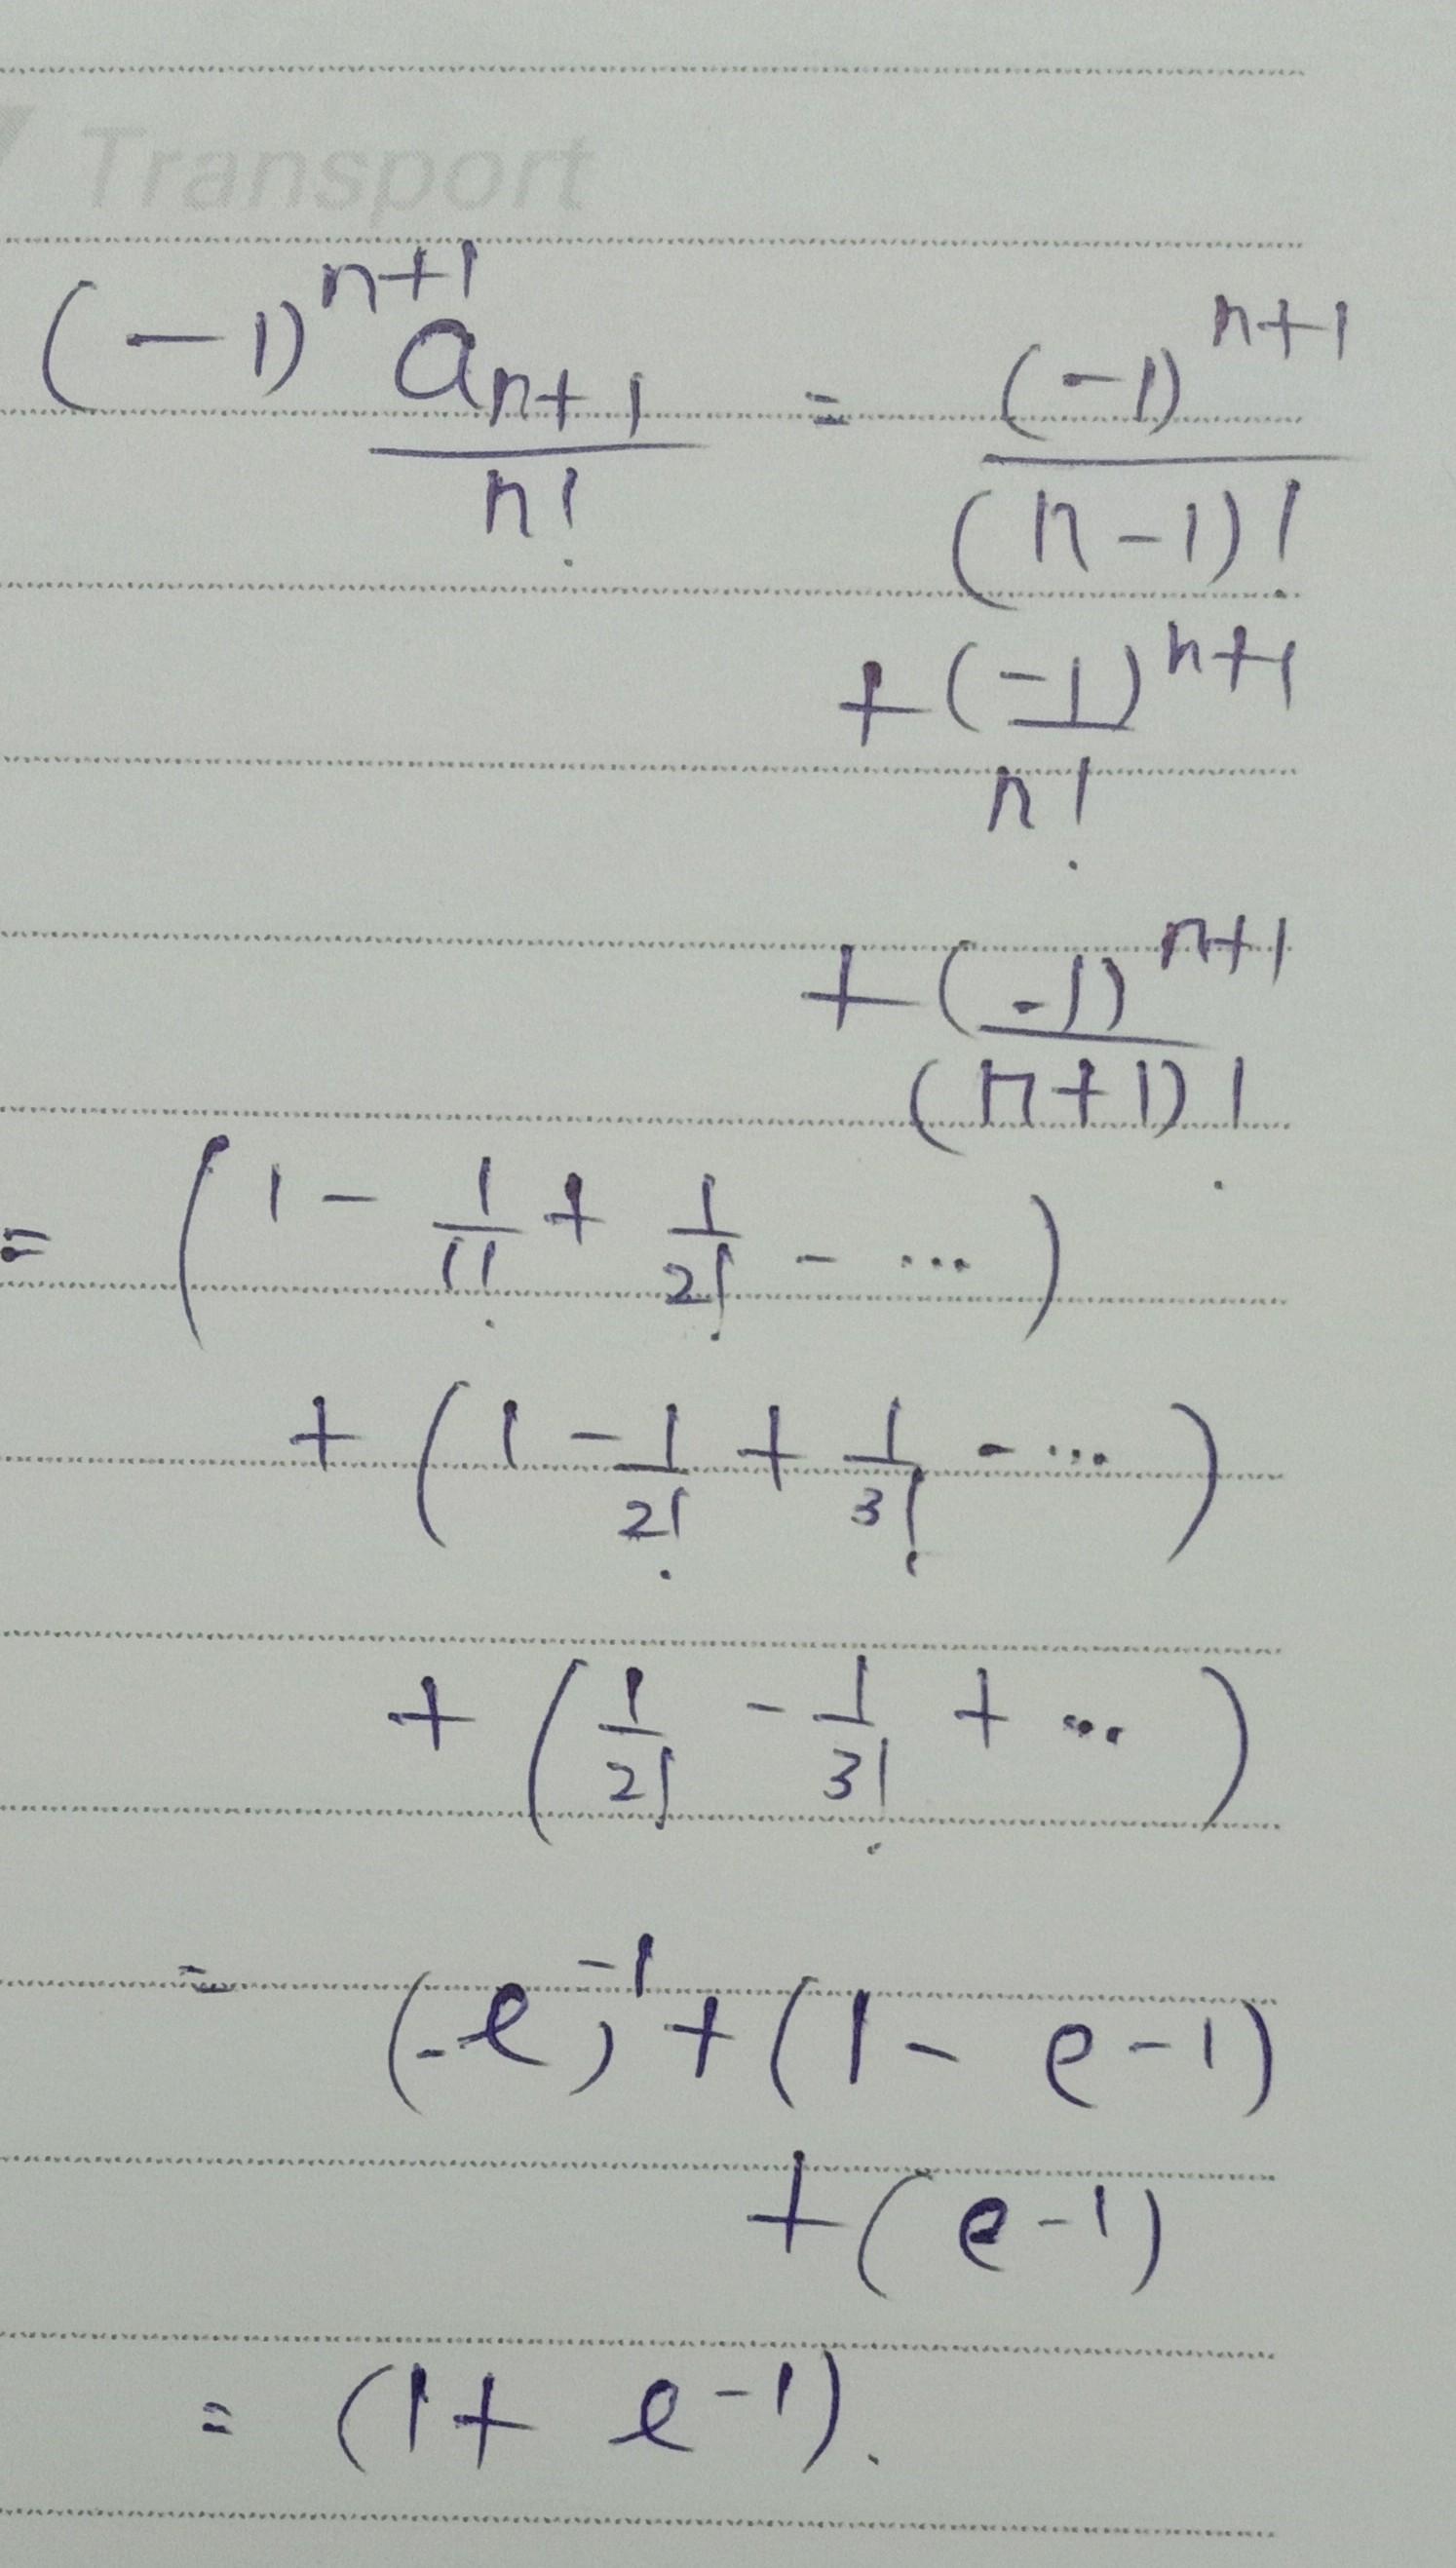 Transport
(-1)^{n+1} a_{n+1} / n! = (-1)^{n+1} / (n-1)!
+ (-1)^{n+1} / n!
+ (-1)^{n+1} / (n+1)!
= (1 - 1/1! + 1/2! - ...)
+ (1 - 1/2! + 1/3! - ...)
+ (1/2! - 1/3! + ...)
= (-e^{-1}) + (1 - e^{-1})
+ (e^{-1})
= (1 + e^{-1}).